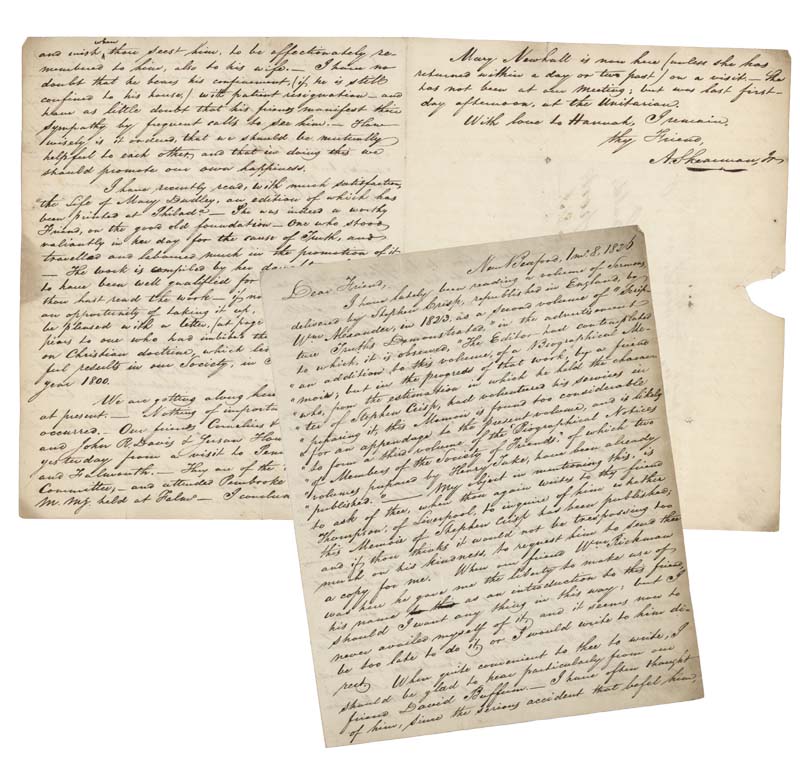 New Bedford, 1 mo. 8, 1826
Dear Friend,
I have lately been reading a volume of Sermons
delivered by Stephen Crisp, republished in England, by
Wm. Alexander, in 1823, as a second volume of "Scrip-
ture Truths Demonstrated," in the advertisement
to which, it is observed, "The Editor had contemplated
"an addition to this volume, of a Biographical Me-
"moir; but in the progress of that work, by a friend
"who, from the estimation in which he held the charac-
"ter of Stephen Crisp, had volunteered his services in
"preparing it, this Memoir is found too considerable
"for an appendage to the present volume, and is likely
"to form a third volume of the 'Biographical Notices
"of Members of the Society of Friends,' of which two
volumes prepared by Henry Tuke, have been already
"published." — My object in mentioning this, is
to ask of thee, when thou again writes to thy friend
Thompson, of Liverpool, to inquire of him whether
this Memoir of Stephen Crisp has been published;
and if thou thinks it would not be trespassing too
much on his kindness, to request him to send thee
a copy for me. When our friend Wm. Rickman
was here he gave me the liberty to make use of
his name as an introduction to this friend,
should I want any thing in this way; but I
never availed myself of it, and it seems now to
be too late to do it, or I would write to him di-
rect. When quite convenient to thee to write, I
should be glad to hear particularly from our
friend David Buffum. — I have often thought
of him, since the serious accident that befel him,
and wish, when thou seest him, to be affectionately re-
membered to him, also to his wife. — I have no
doubt that he bears his confinement, (if he is still
confined to his house,) with patient resignation — and
have as little doubt that his friends manifest their
sympathy by frequent calls to see him. — How
wisely is it ordered, that we should be mutually
helpful to each other, and that in doing this we
should promote our own happiness.
I have recently read, with much satisfaction,
the Life of Mary Dudley, an edition of which has
been printed at Philada. — She was indeed a worthy
Friend, on the good old foundation — One who stood
valiantly in her day for the cause of Truth, and
travelled and laboured much in the promotion of it
— The work is compiled by her
to have been well qualified for
thou hast read the work — if no
an opportunity of taking it up,
be pleased with a letter, (at page
pious to one who had imbibed
on Christian doctrine, which led
ful results in our Society, in
year 1800.
We are getting along here
at present. — Nothing of import
occurred. — Our friends Cornelius
and John R. Davis &
yesterday from a visit to Pem
and Falmouth. — They are of the
Committee, — and attended Pembrooke
M. Mg. held at Falm — I conclude
Mary Newhall is now here (unless she has
returned within a day or two past) on a visit — She
has not been at our meeting; but was last first-
day afternoon, at the Unitarian.
With love to Hannah, I remain
thy Friend,
A. Shearman, Jr